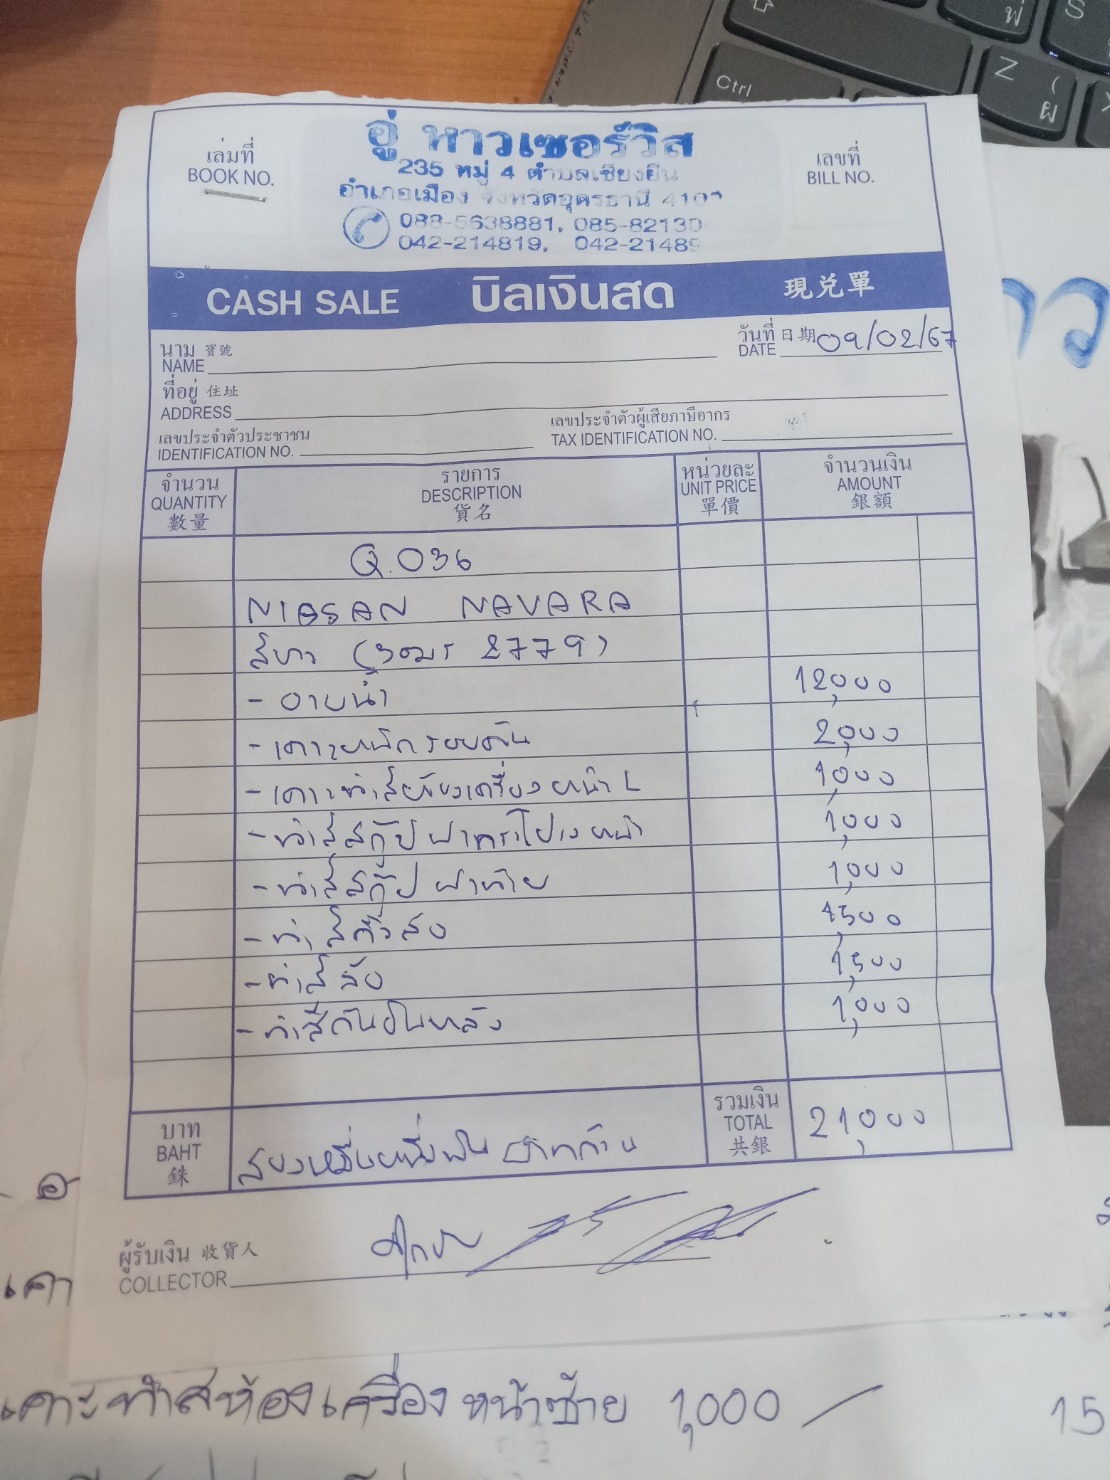 เล่มที่
BOOK NO.
อู่ หาวเซอร์วิส
235 หมู่ 4 ตำบลเชียงยืน
อำเภอเมือง จังหวัดอุดรธานี 410
088-5638881, 085-82130
042-214819, 042-21489
เลขที่
BILL NO.
CASH SALE บิลเงินสด 現兑單
นาม 寳號
NAME
วันที่ 日期 09/02/67
DATE
ที่อยู่ 住址
ADDRESS
เลขประจำตัวประชาชน
IDENTIFICATION NO.
เลขประจำตัวผู้เสียภาษีอากร
TAX IDENTIFICATION NO.
จำนวน รายการ หน่วยละ จำนวนเงิน
QUANTITY DESCRIPTION UNIT PRICE AMOUNT
數量 貨名 單價 銀額
Q.036
NISSAN NAVARA
สีขาว (2779)
- อาบน้ำ 12,000
- เคาะหนักรอบคัน 2,000
- เคาะทำสีห้องเครื่องหน้า L 1,000
- ทำสีสกู๊ป ฝากระโปรงหน้า 1,000
- ทำสีสกู๊ป ฝาท้าย 1,000
- ทำสีคิ้วล้อ 1,500
- ทำสีล้อ 1,500
- ทำสีกันชนหลัง 1,000
บาท
BAHT
銖
สองหมื่นหนึ่งพันบาทถ้วน
รวมเงิน
TOTAL
共銀
21,000
ผู้รับเงิน 收貨人
COLLECTOR
เคา
เคาะทำสีห้องเครื่องหน้าซ้าย 1,000 15
Ctrl
Z
S